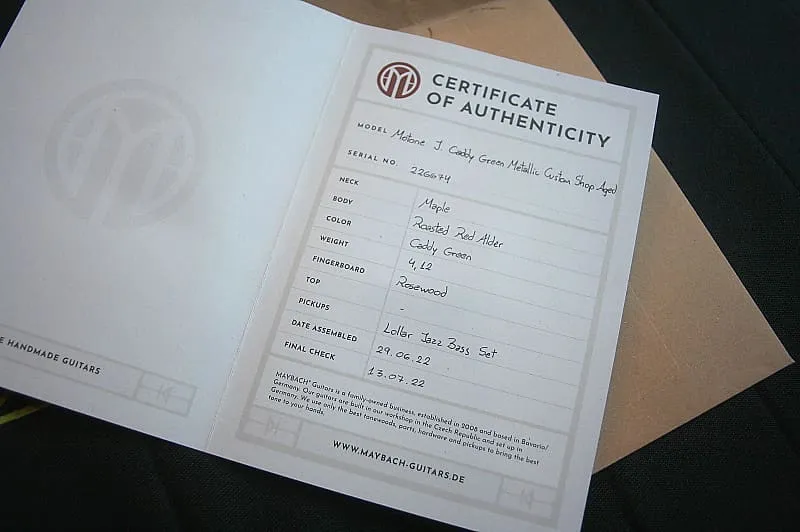 CERTIFICATE
OF AUTHENTICITY
MODEL Motone J Caddy Green Metallic Custom Shop Aged
SERIAL NO. 226674
NECK Maple
BODY Roasted Red Alder
COLOR Caddy Green
WEIGHT 4,12
FINGERBOARD Rosewood
TOP -
PICKUPS Lollar Jazz Bass Set
DATE ASSEMBLED 29.06.22
FINAL CHECK 13.07.22
MAYBACH® Guitars is a family-owned business, established in 2006 and based in Bavaria/
Germany. Our guitars are built in our workshop in the Czech Republic and set up in
Germany. We use only the best tonewoods, parts, hardware and pickups to bring the best
tone to your hands.
WWW.MAYBACH-GUITARS.DE
HANDMADE GUITARS